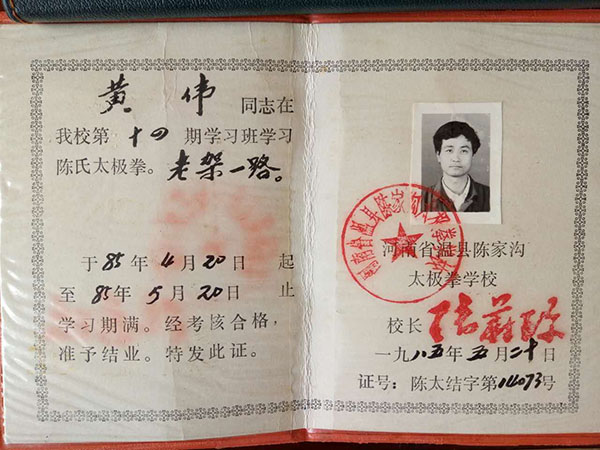 黄 伟 同志在
我校第 十四 期学习班学习
陈氏太极拳。老架一路。
于 85年 4月 20日 起
至 85年 5月 20日 止
学习期满。经考核合格,
准予结业。特发此证。
河南省温县陈家沟
太极拳学校
校长 张蔚珍
一九八五年 五月二十日
证号:陈太结字第14073号